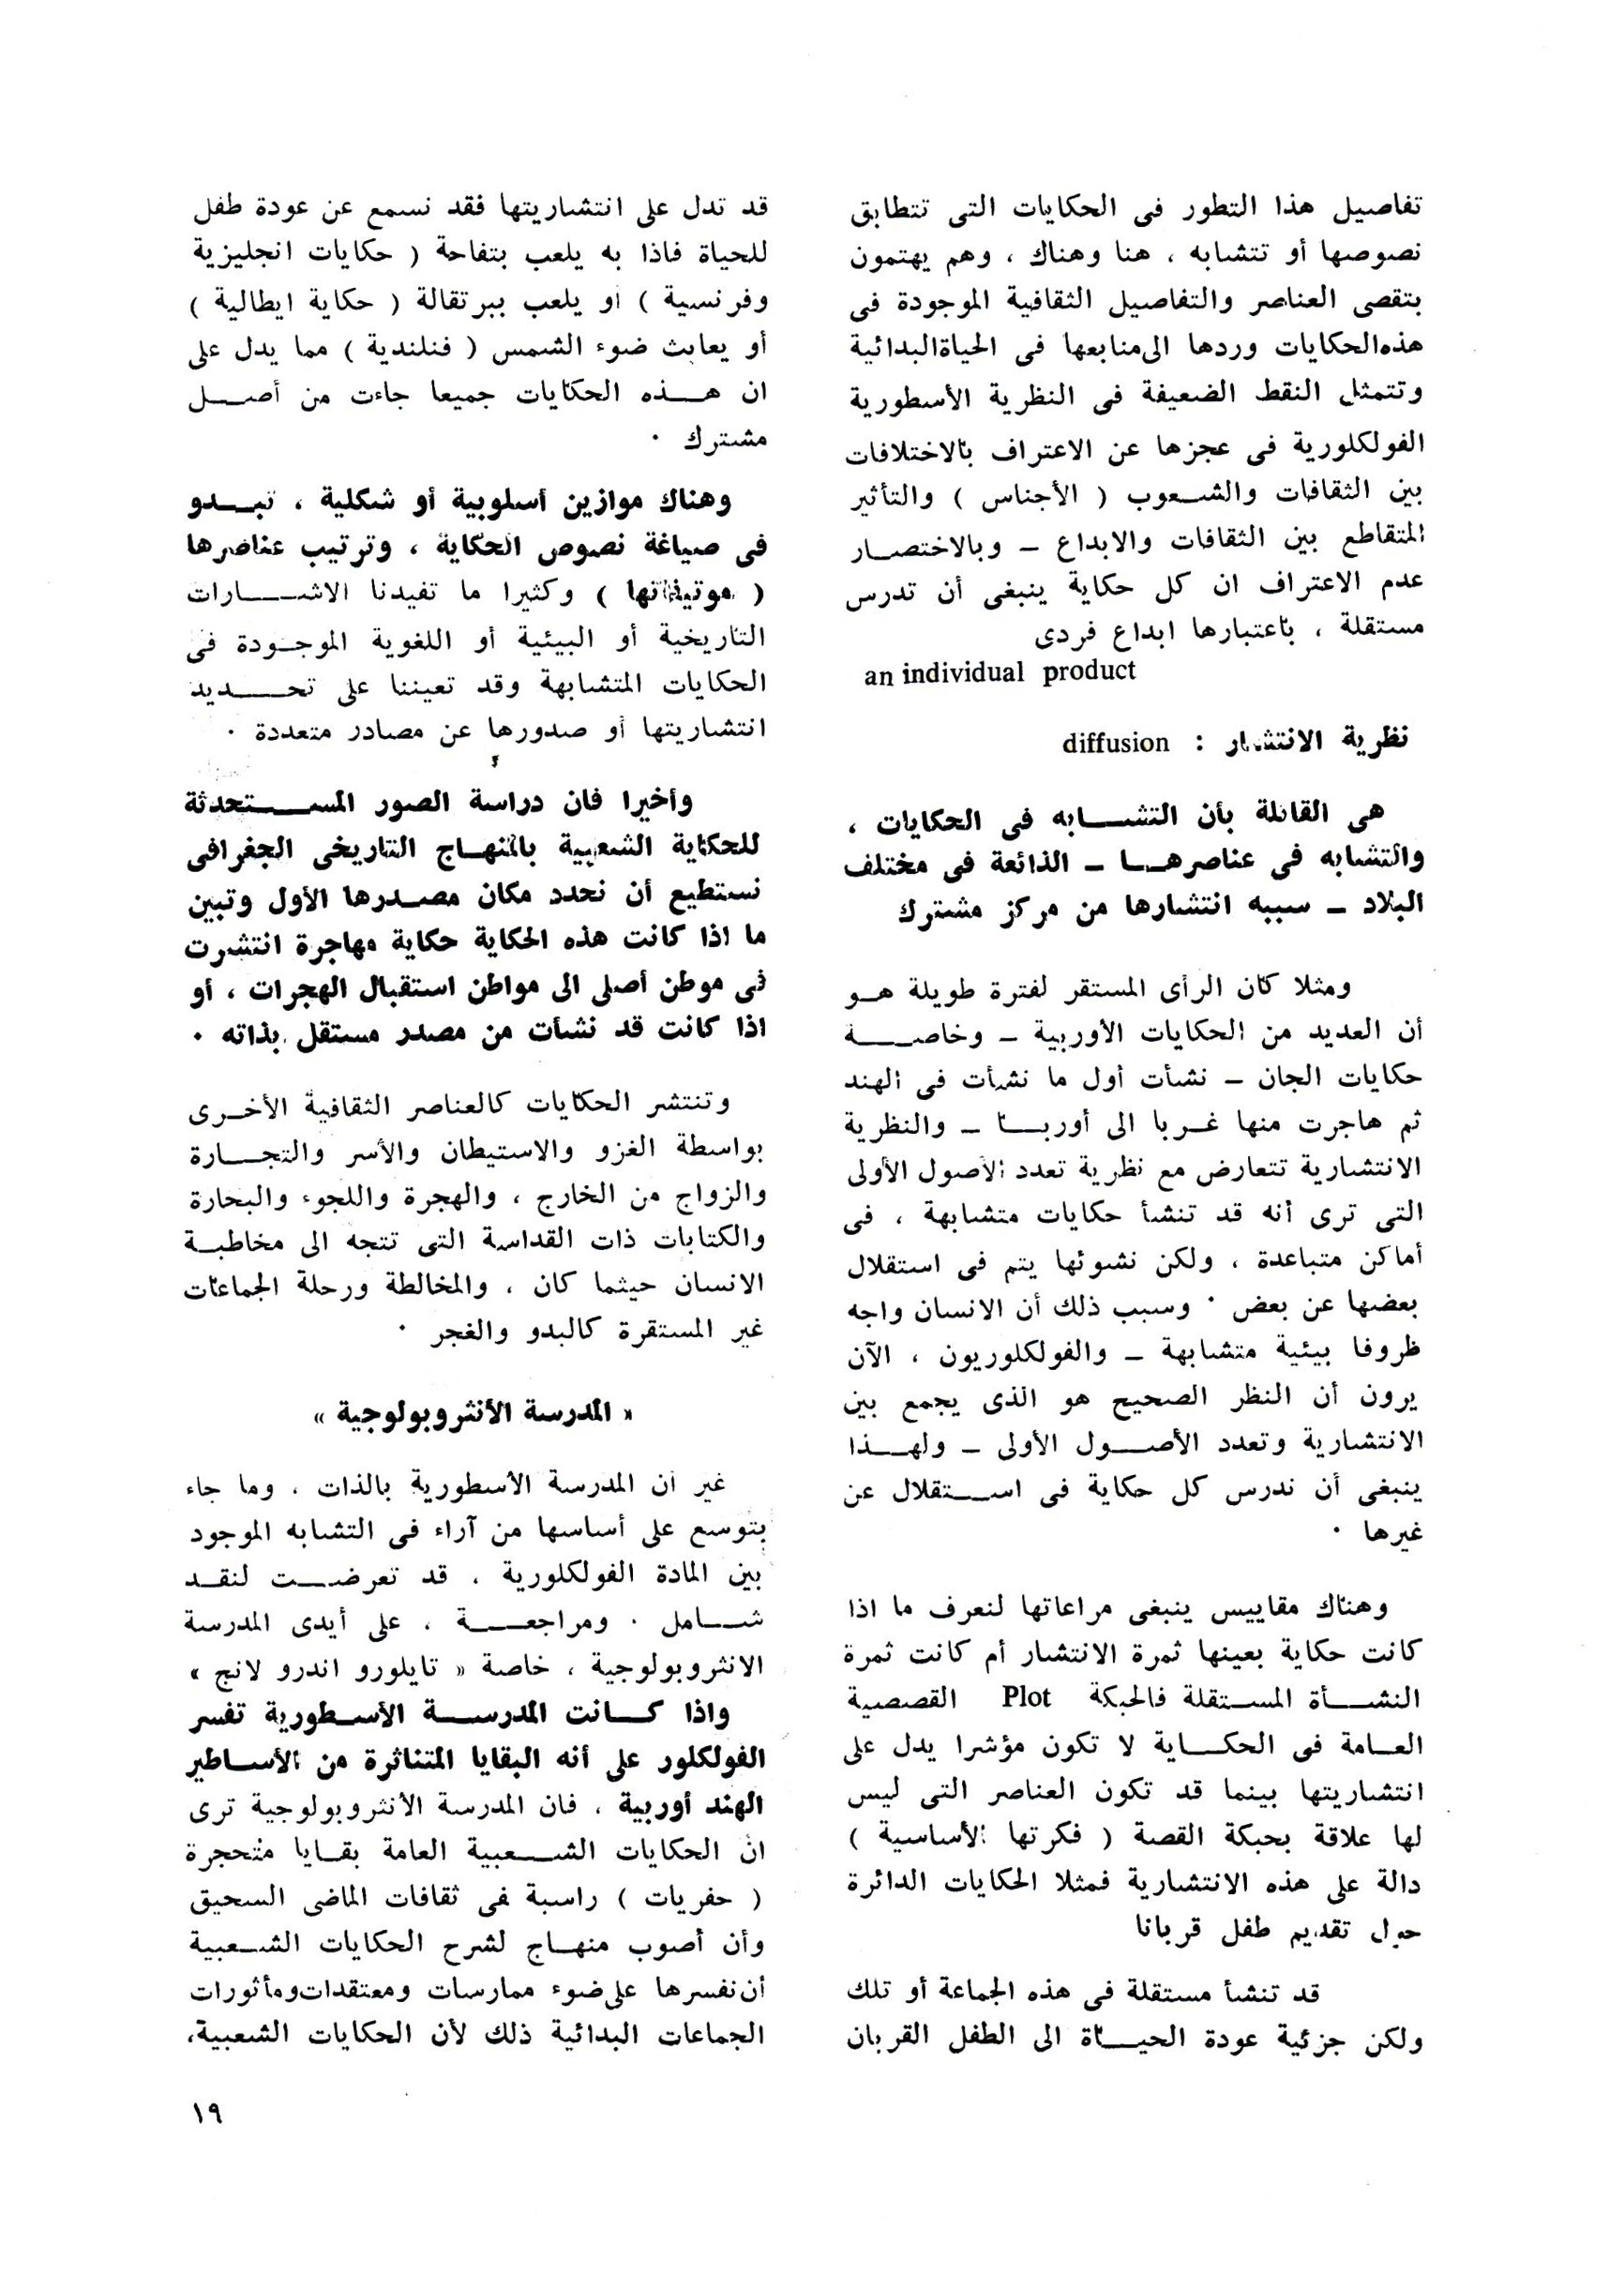 تفاصيل هذا التطور فى الحكايات التى تتطابق
نصوصها أو تتشابه ، هنا وهناك ، وهم يهتمون
بتقصى العناصر والتفاصيل الثقافية الموجودة فى
هذه الحكايات وردها الى منابعها فى الحياة البدائية
وتتمثل النقط الضعيفة فى النظرية الأسطورية
الفولكلورية فى عجزها عن الاعتراف بالاختلافات
بين الثقافات والشعوب ( الأجناس ) والتأثير
المتقاطع بين الثقافات والابداع ـ وبالاختصار
عدم الاعتراف ان كل حكاية ينبغى أن تدرس
مستقلة ، باعتبارها ابداع فردى
an individual product
نظرية الانتشار : diffusion
هى القائلة بأن التشابه فى الحكايات ،
والتشابه فى عناصرها ـ الذائعة فى مختلف
البلاد ـ سببه انتشارها من مركز مشترك
ومثلا كان الرأى المستقر لفترة طويلة هو
أن العديد من الحكايات الأوربية ـ وخاصة
حكايات الجان ـ نشأت أول ما نشأت فى الهند
ثم هاجرت منها غربا الى أوربا ـ والنظرية
الانتشارية تتعارض مع نظرية تعدد الأصول الأولى
التى ترى أنه قد تنشأ حكايات متشابهة ، فى
أماكن متباعدة ، ولكن نشوئها يتم فى استقلال
بعضها عن بعض ٠ وسبب ذلك أن الانسان واجه
ظروفا بيئية متشابهة ـ والفولكلوريون ، الآن
يرون أن النظر الصحيح هو الذى يجمع بين
الانتشارية وتعدد الأصول الأولى ـ ولهذا
ينبغى أن ندرس كل حكاية فى استقلال عن
غيرها ٠
وهناك مقاييس ينبغى مراعاتها لنعرف ما اذا
كانت حكاية بعينها ثمرة الانتشار أم كانت ثمرة
النشأة المستقلة فالحبكة Plot القصصية
العامة فى الحكاية لا تكون مؤشرا يدل على
انتشاريتها بينما قد تكون العناصر التى ليس
لها علاقة بحبكة القصة ( فكرتها الأساسية )
دالة على هذه الانتشارية فمثلا الحكايات الدائرة
حول تقديم طفل قربانا
قد تنشأ مستقلة فى هذه الجماعة أو تلك
ولكن جزئية عودة الحياة الى الطفل القربان
قد تدل على انتشاريتها فقد نسمع عن عودة طفل
للحياة فاذا به يلعب بتفاحة ( حكايات انجليزية
وفرنسية ) أو يلعب ببرتقالة ( حكاية ايطالية )
أو يعابث ضوء الشمس ( فنلندية ) مما يدل على
ان هذه الحكايات جميعا جاءت من أصل
مشترك ٠
وهناك موازين أسلوبية أو شكلية ، تبدو
فى صياغة نصوص الحكاية ، وترتيب عناصرها
( موتيفاتها ) وكثيرا ما تفيدنا الاشارات
التاريخية أو البيئية أو اللغوية الموجودة فى
الحكايات المتشابهة وقد تعيننا على تحديد
انتشاريتها أو صدورها عن مصادر متعددة ٠
وأخيرا فان دراسة الصور المستحدثة
للحكاية الشعبية بالمنهاج التاريخى الجغرافى
نستطيع أن نحدد مكان مصدرها الأول وتبين
ما اذا كانت هذه الحكاية حكاية مهاجرة انتشرت
فى موطن أصلى الى مواطن استقبال الهجرات ، أو
اذا كانت قد نشأت من مصدر مستقل بذاته ٠
وتنتشر الحكايات كالعناصر الثقافية الأخرى
بواسطة الغزو والاستيطان والأسر والتجارة
والزواج من الخارج ، والهجرة واللجوء والبحارة
والكتابات ذات القداسة التى تتجه الى مخاطبة
الانسان حيثما كان ، والمخالطة ورحلة الجماعات
غير المستقرة كالبدو والغجر ٠
« المدرسة الأنثروبولوجية »
غير ان المدرسة الأسطورية بالذات ، وما جاء
بتوسع على أساسها من آراء فى التشابه الموجود
بين المادة الفولكلورية ، قد تعرضت لنقد
شامل ٠ ومراجعة ، على أيدى المدرسة
الانثروبولوجية ، خاصة « تايلورو اندرو لانج »
واذا كانت المدرسة الأسطورية تفسر
الفولكلور على أنه البقايا المتناثرة من الأساطير
الهند أوربية ، فان المدرسة الأنثروبولوجية ترى
ان الحكايات الشعبية العامة بقايا متحجرة
( حفريات ) راسبة فى ثقافات الماضى السحيق
وأن أصوب منهاج لشرح الحكايات الشعبية
أن نفسرها على ضوء ممارسات ومعتقدات ومأثورات
الجماعات البدائية ذلك لأن الحكايات الشعبية،
١٩